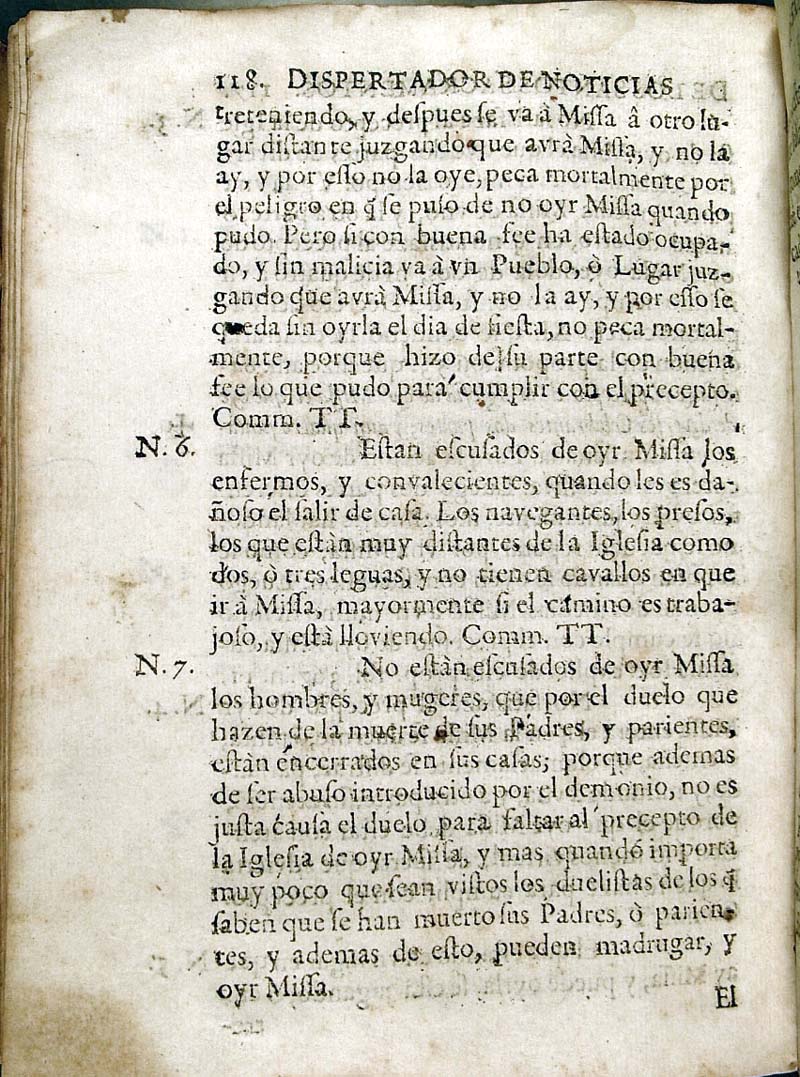 118. DISPERTADOR DE NOTICIAS
treteniendo, y deſpues ſe va à Miſſa â otro lu-
gar diſtante juzgando que avrà Miſſa, y no la
ay, y por eſſo no la oye, peca mortalmente por
el peligro en q̃ ſe puſo de no oyr Miſſa quando
pudo. Pero ſi con buena fee ha eſtado ocupa-
do, y ſin malicia va à vn Pueblo, ò Lugar juz-
gando que avrà Miſſa, y no la ay, y por eſſo ſe
queda ſin oyrla el dia de fieſta, no peca mortal-
mente, porque hizo de ſu parte con buena
fee lo que pudo para cumplir con el precepto.
Comm. TT.
N. 6. Eſtan eſcuſados de oyr Miſſa los
enfermos, y convalecientes, quando les es da-
ñoſo el ſalir de caſa. Los navegantes, los preſos,
los que eſtàn muy diſtantes de la Igleſia como
dos, ò tres leguas, y no tienen cavallos en que
ir à Miſſa, mayormente ſi el camino es traba-
joſo, y eſtà lloviendo. Comm. TT.
N. 7. No eſtàn eſcuſados de oyr Miſſa
los hombres, y mugeres, que por el duelo que
hazen de la muerte de ſus Padres, y parientes,
eſtàn encerrados en ſus caſas; porque ademas
de ſer abuſo introducido por el demonio, no es
juſta cauſa el duelo para faltar al precepto de
la Igleſia de oyr Miſſa, y mas quando importa
muy poco que ſean viſtos los dueliſtas de los q̃
ſaben que ſe han muerto ſus Padres, ò parien-
tes, y ademas de eſto, pueden madrugar, y
oyr Miſſa.
El